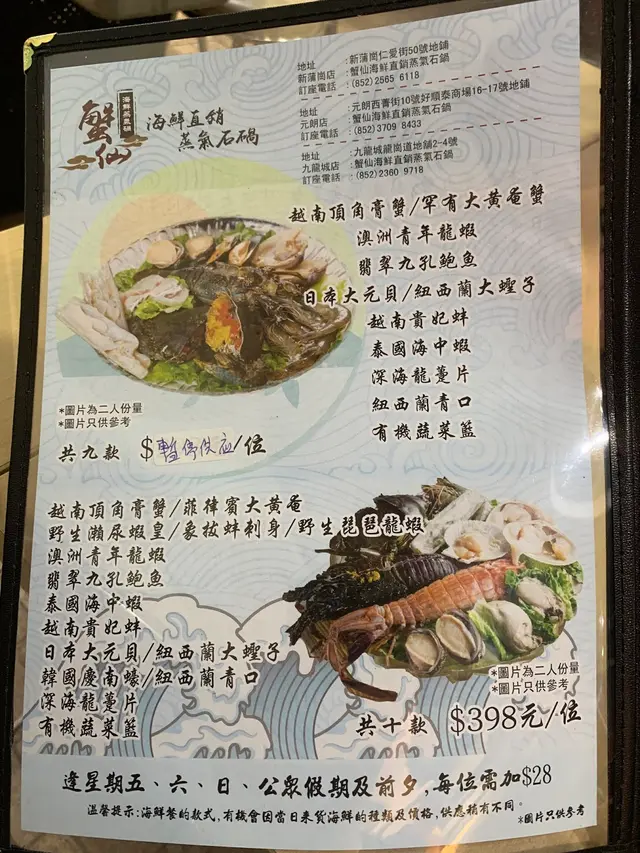 蟹仙
海鮮蒸氣鍋
海鮮直銷
蒸氣石鍋
地址 :新蒲崗仁愛街50號地鋪
新蒲崗店 :蟹仙海鮮直銷蒸氣石鍋
訂座電話 :(852) 2565 6118
地址 :元朗西菁街10號好順泰商場16-17號地鋪
元朗店 :蟹仙海鮮直銷蒸氣石鍋
訂座電話 :(852) 3709 8433
地址 :九龍城龍崗道地舖2-4號
九龍城店 :蟹仙海鮮直銷蒸氣石鍋
訂座電話 :(852) 2360 9718
越南頂角膏蟹/罕有大黃奄蟹
澳洲青年龍蝦
翡翠九孔鮑魚
日本大元貝/紐西蘭大蟶子
越南貴妃蚌
泰國海中蝦
深海龍躉片
紐西蘭青口
有機蔬菜籃
*圖片為二人份量
*圖片只供參考
共九款 $暫停供应/位
越南頂角膏蟹/菲律賓大黃奄
野生瀨尿蝦皇/象拔蚌刺身/野生琵琶龍蝦
澳洲青年龍蝦
翡翠九孔鮑魚
泰國海中蝦
越南貴妃蚌
日本大元貝/紐西蘭大蟶子
韓國慶南蠔/紐西蘭青口
深海龍躉片
有機蔬菜籃
*圖片為二人份量
*圖片只供參考
共十款 $398元/位
逢星期五、六、日、公眾假期及前夕,每位需加$28
溫馨提示:海鮮餐的款式,有機會因當日來貨海鮮的種類及價格,供應稍有不同。
*圖片只供參考